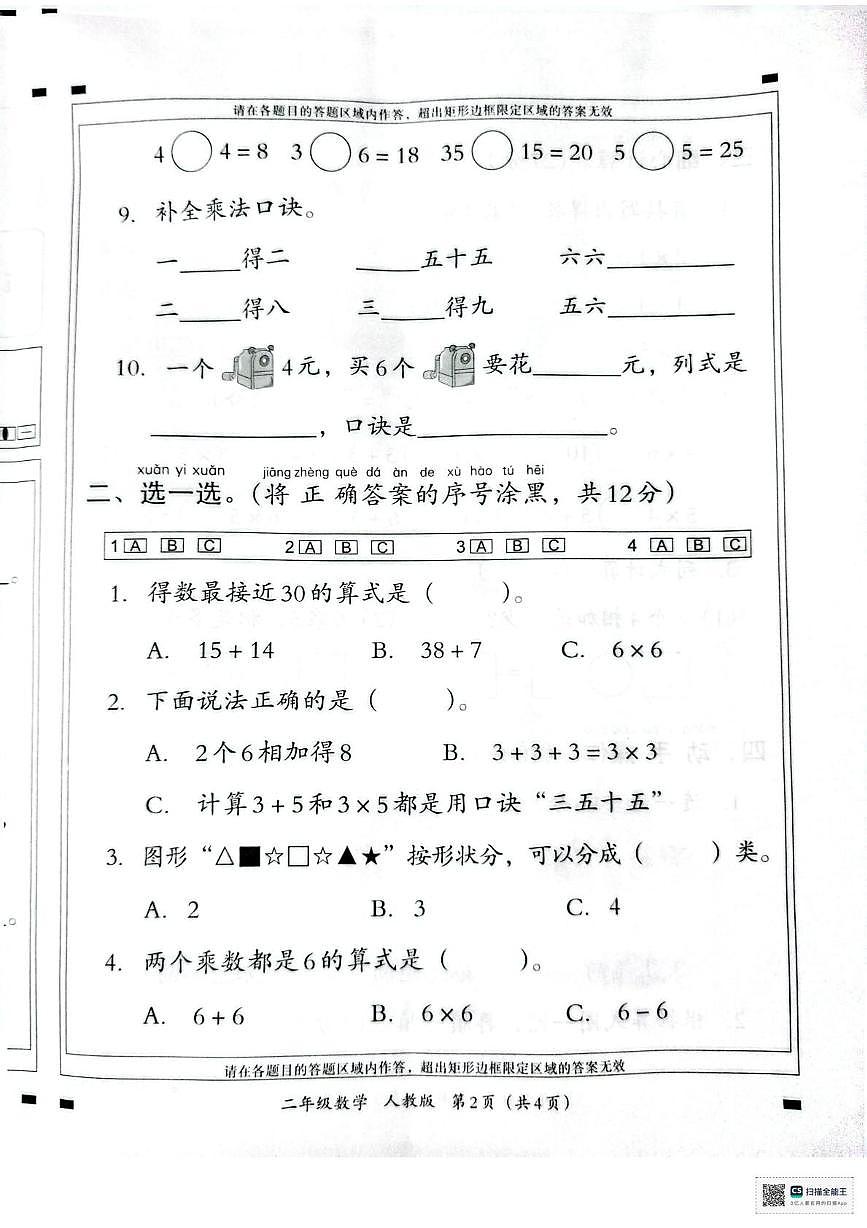 请在各题目的答题区域内作答，超出矩形边框限定区域的答案无效
4○4=8 3○6=18 35○15=20 5○5=25
9. 补全乘法口诀。
一____得二 ____五十五 六六________
二____得八 三____得九 五六________
10. 一个 4元，买6个 要花______元，列式是
___________，口诀是_____________。
xuǎn yi xuǎn jiāng zhèng què dá àn de xù hào tú hēi
二、选一选。（将正确答案的序号涂黑，共12分）
1 A B C 2 A B C 3 A B C 4 A B C
1. 得数最接近30的算式是（ ）。
A. 15+14 B. 38+7 C. 6×6
2. 下面说法正确的是（ ）。
A. 2个6相加得8 B. 3+3+3=3×3
C. 计算3+5和3×5都是用口诀“三五十五”
3. 图形“△■☆□☆▲★”按形状分，可以分成（ ）类。
A. 2 B. 3 C. 4
4. 两个乘数都是6的算式是（ ）。
A. 6+6 B. 6×6 C. 6-6
请在各题目的答题区域内作答，超出矩形边框限定区域的答案无效
二年级数学 人教版 第2页（共4页）
CS 扫描全能王
3亿人都在用的扫描App